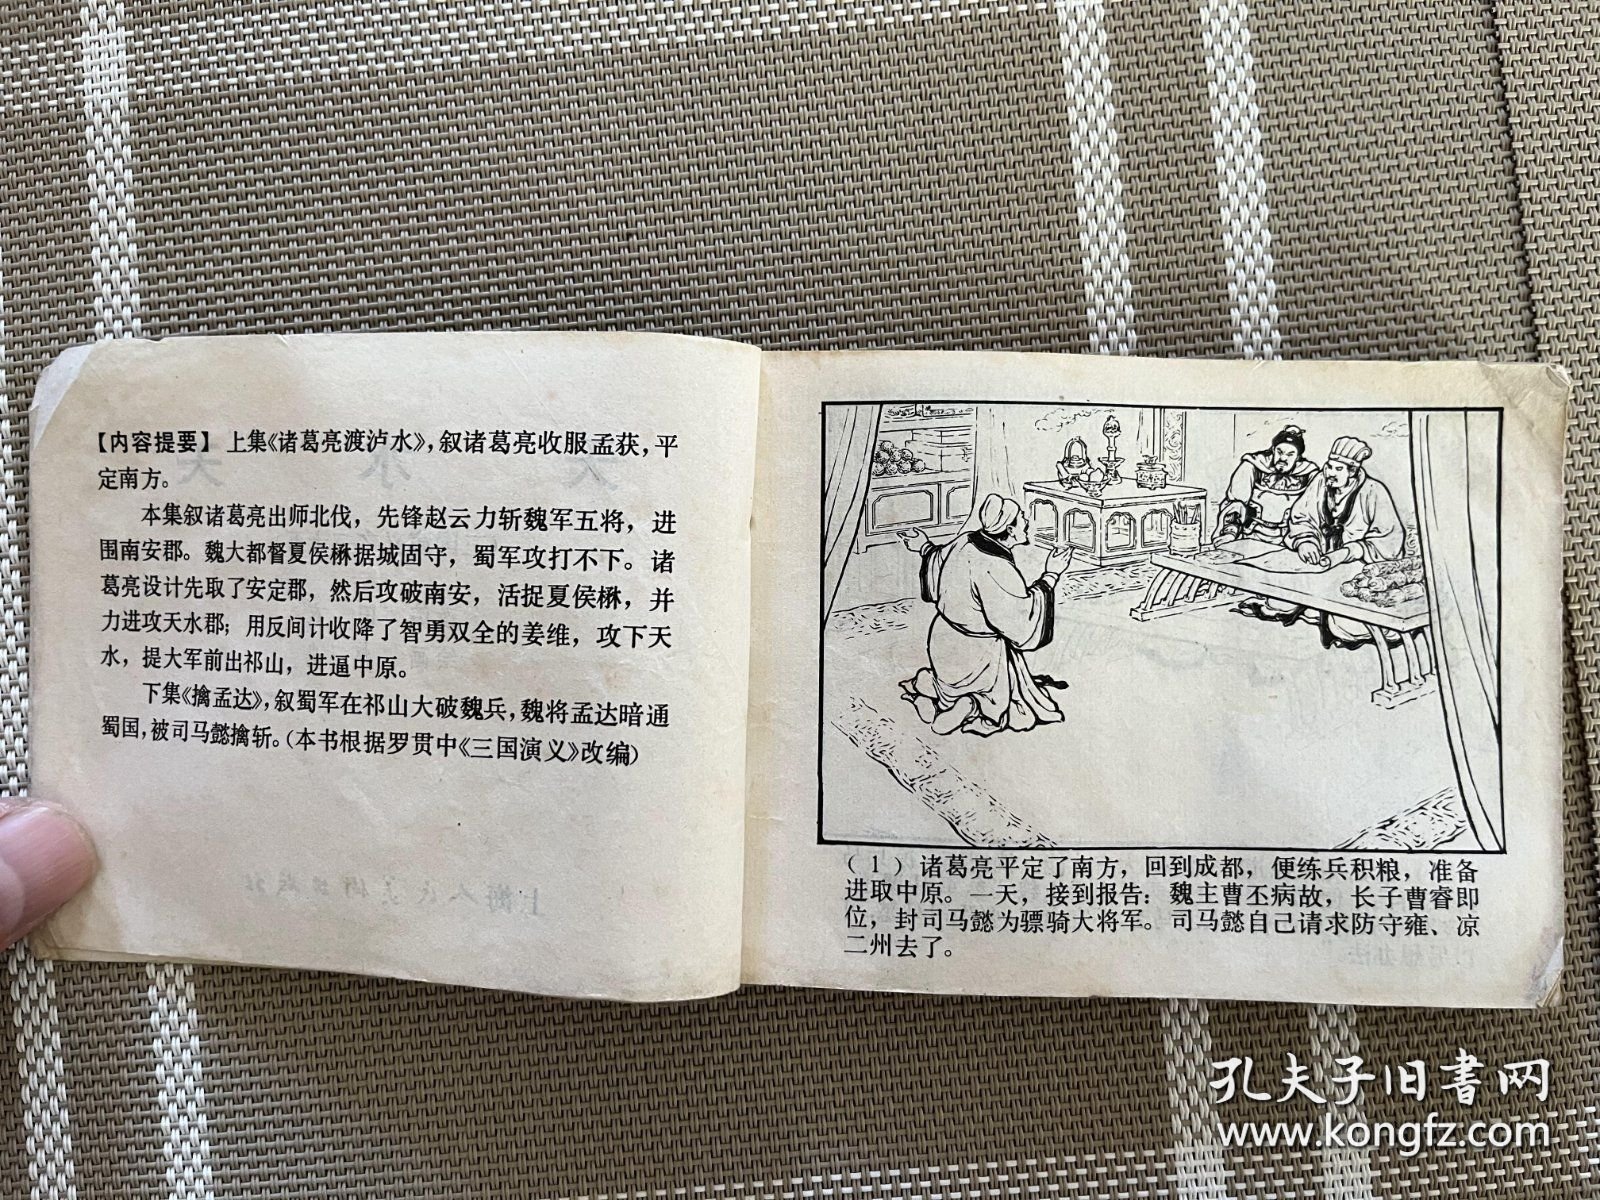 【内容提要】 上集《诸葛亮渡泸水》，叙诸葛亮收服孟获，平
定南方。
本集叙诸葛亮出师北伐，先锋赵云力斩魏军五将，进
围南安郡。魏大都督夏侯楙据城固守，蜀军攻打不下。诸
葛亮设计先取了安定郡，然后攻破南安，活捉夏侯楙，并
力进攻天水郡；用反间计收降了智勇双全的姜维，攻下天
水，提大军前出祁山，进逼中原。
下集《擒孟达》，叙蜀军在祁山大破魏兵，魏将孟达暗通
蜀国，被司马懿擒斩。（本书根据罗贯中《三国演义》改编）
（1）诸葛亮平定了南方，回到成都，便练兵积粮，准备
进取中原。一天，接到报告：魏主曹丕病故，长子曹睿即
位，封司马懿为骠骑大将军。司马懿自己请求防守雍、凉
二州去了。
孔夫子旧书网
www.kongfz.com